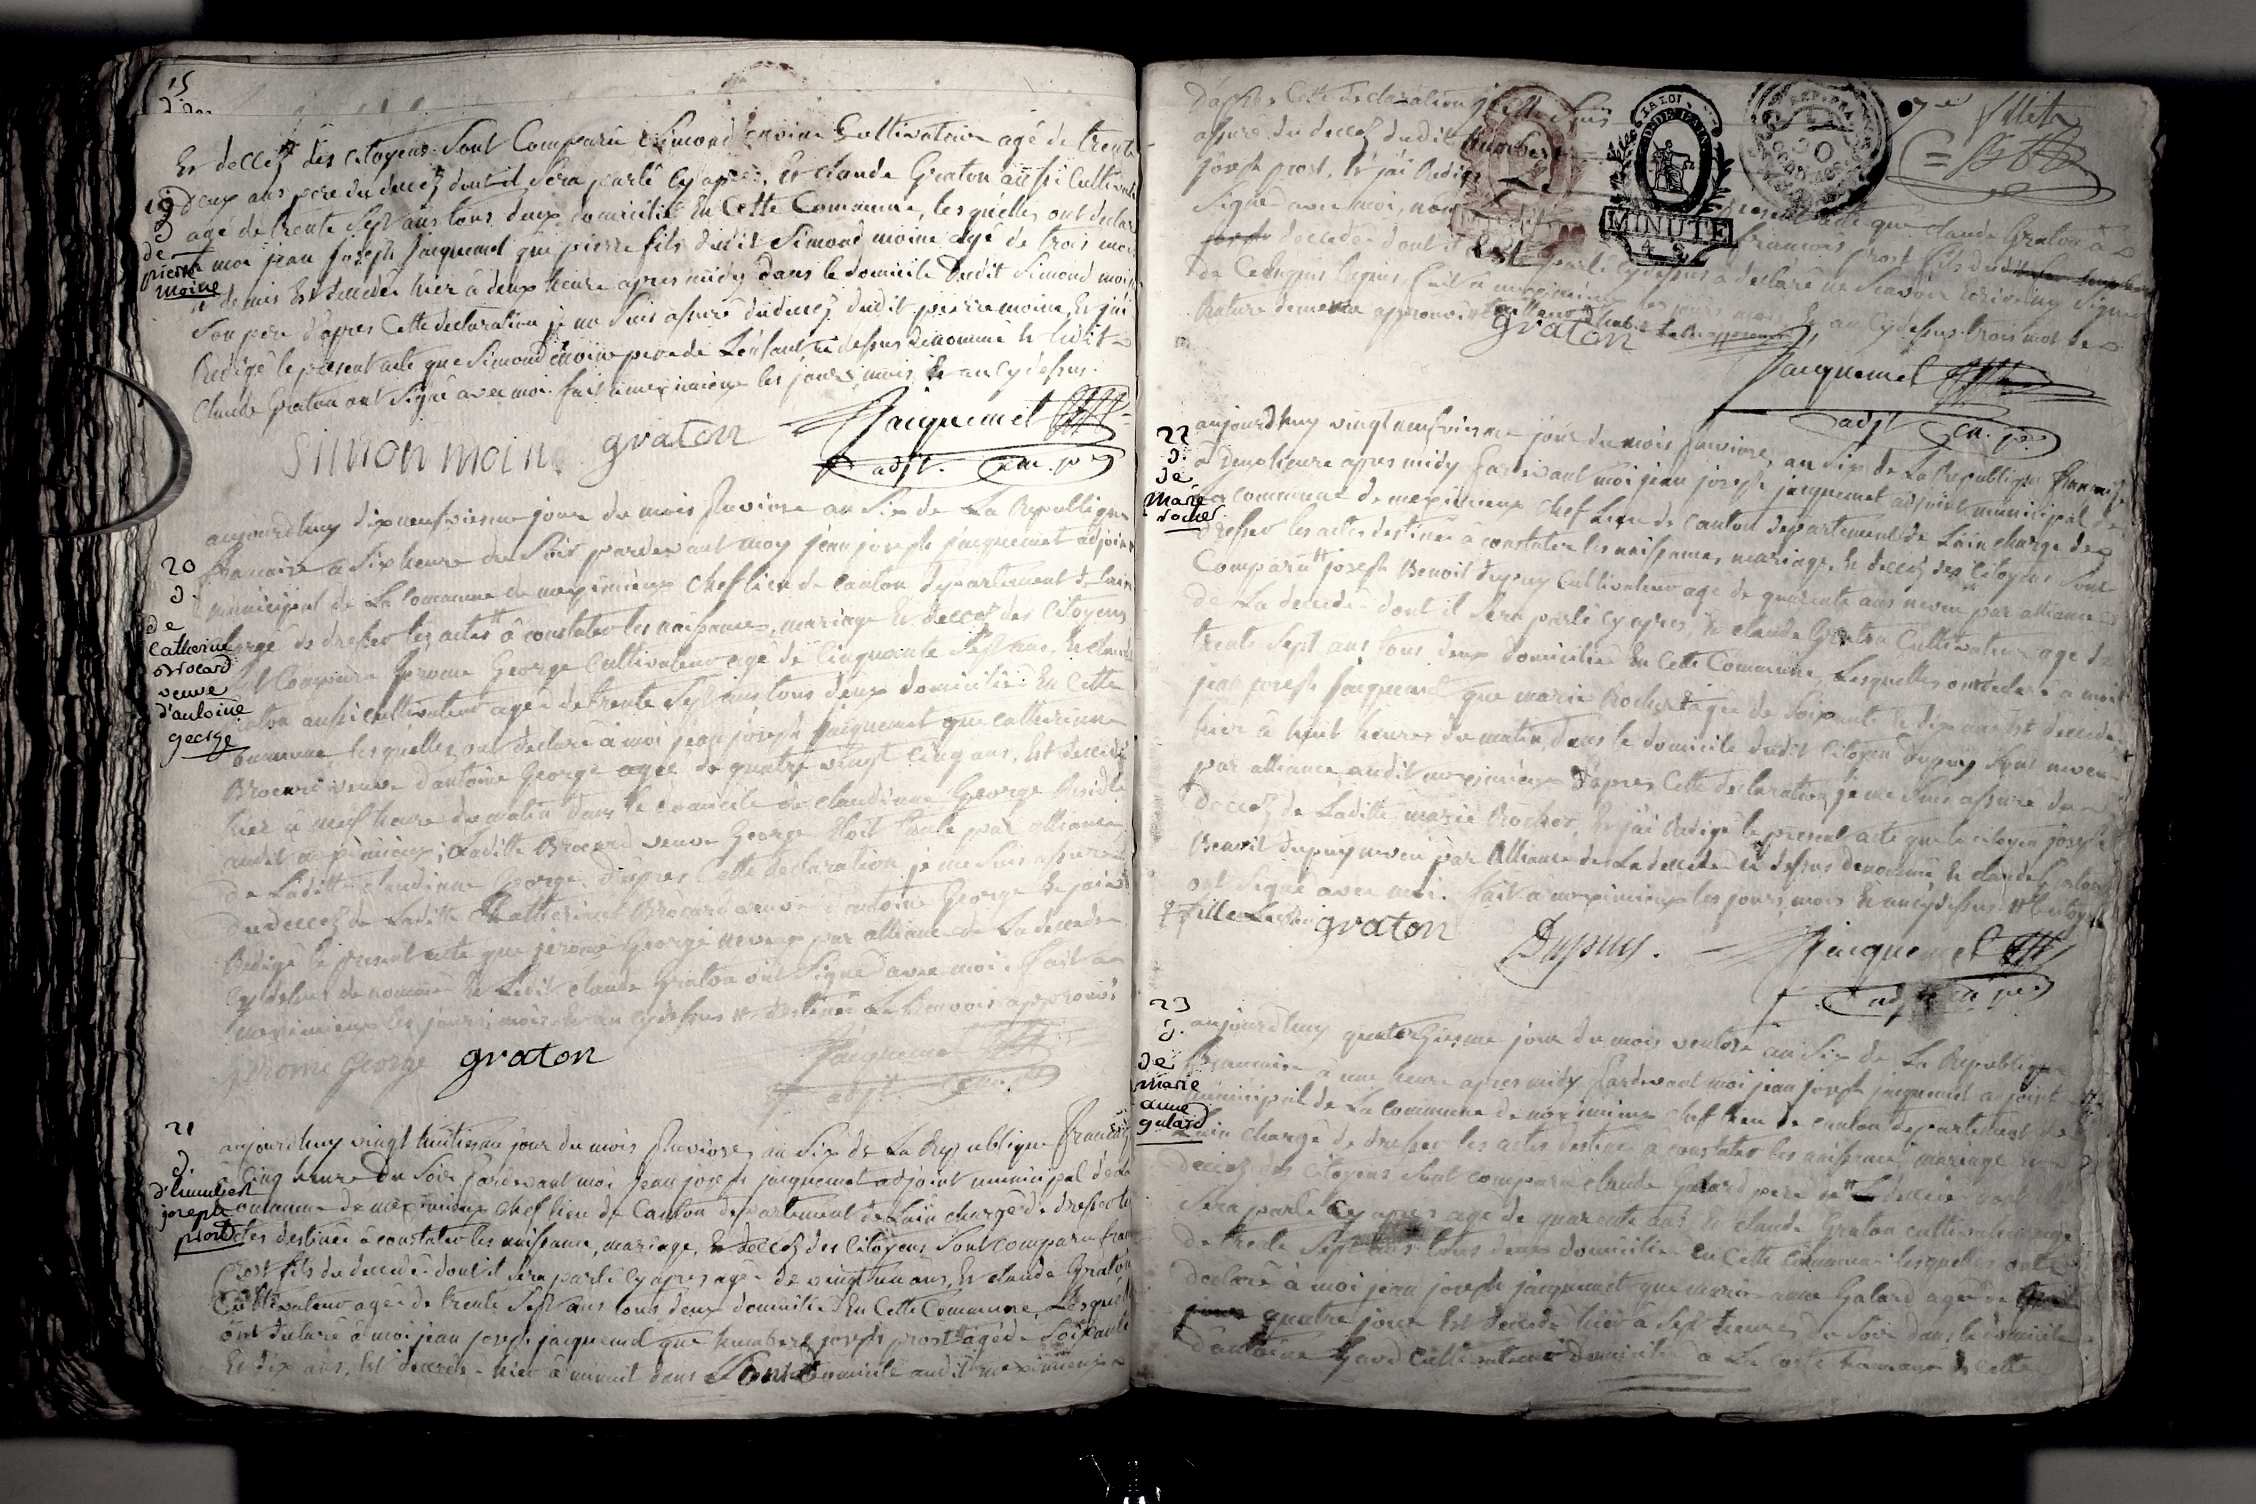 15
Et deccez des citoyens Sont Comparû Simond moine Cultivateur agé de trente
19
D
de
pierre
moine
deux ans pere du deccez dont il Sera parlé cy après, Et Claude Graton aussi Cultivat
agé de trente Sept ans tous deux domicilié En Cette Commune, lesquelles ont declar
moi jean joseph Jacquemet que pierre fils dudit Simond moine agé de trois mois
et demis Est deccedé hier à deux heure apres midy dans le domicile dudit Simond moi
Son pere d'apres Cette declaration je me Suis assuré du deccez dudit pierre moine, Et j'ai
Redigé le present acte que Simond moine pere de L'enfant ci dessus denommé Et ledit
Claude Graton ont Signé avec moi. fait à meximieux les jours mois Et an cy dessus.
Simon moine graton Jacquemet
adjt. mu. pr
20
D.
de
Catherine
Brocard
veuve
d'antoine
george
aujourdhuy dix neufvieme jour du mois pluviose an Six de La Republique
francaise à Six heure du Soir pardevant moy jean joseph jacquemet adjoint
municipal de La Commune de meximieux Chef lieu de Canton departement de lain
chargé de dresser les actes à constater les naissances, mariage Et deccez des Citoyens
Sont Comparu Jerome George Cultivateur agé de Cinquante Sept ans, Et claude
Graton aussi cultivateur agée de trente Sept ans tous deux domicilié En Cette
Commune, lesquelles ont declaré à moi jean joseph jacquemet que Catherinne
Brocard veuve d'antoine George agée de quatre vingt Cinq ans, Est deccedé
hier à neuf heure du matin dans le domicile de claudinne George
audit meximieux; Ladite Brocard veuve George Etoit tante par alliance
de Laditte claudinne George. d'apres Cette declaration je me Suis assuré
du deccez de Laditte Catherine Brocard veuve d'antoine George Et j'ai
Redigé le present acte que jerome George neveux par alliance de La deccedé
cy dessus denommée Et Ledit Claude Graton ont Signé avec moi. fait à
meximieux les jours, mois Et an cy dessus destinée approuvé
Jerome George graton Jacquemet
adjt. mu. pr
21
D.
d'himbert
joseph
prost
aujourdhuy vingt huitieme jour du mois pluviose, an Six de La Republique francaise
à Cinq heure du Soir pardevant moi jean joseph jacquemet adjoint municipal de La
Commune de meximieux Chef lieu de Canton departement de Lain chargé de dresser les
actes destinée à constater les naissance, mariage, Et deccez des Citoyens Sont comparu
prost fils du deccedé dont il Sera parlé cy apres agée de vingt un ans, Et claude Graton
Cultivateur agée de trente Sept ans tous deux domicilié En Cette Commune, Lesquelles
ont declaré à moi jean joseph jacquemet que humbert joseph prost agé de Soixante
Et dix ans, Est deccedé hier à minuit dans Son domicile audit meximieux
D'apres Cette declaration je me Suis
assuré du deccez dudit humbert
joseph prost, Et j'ai Redigé le
LA LOI
MINUTE
Signé avec moi, present acte que claude Graton à
deccedée dont il Est parlé cy dessus à declaré ne Scavoir Ecrire ny Signer
francois prost fils dudit
de Ce Requis. fait à meximieux les jours mois Et an cy dessus trois mot
Rature
graton
Jacquemet
adjt mu. pr
22
D.
de
Marie
rocher
aujourdhuy vingt neufvieme jour du mois pluviose, an Six de La Republique francaise
à deux heure apres midy pardevant moi jean joseph jacquemet adjoint municipal de
La commune de meximieux Chef Lieu de Canton departement de Lain charge de
dresser les actes destinée à constater les naissances, mariage, Et deccez des Citoyens Sont
Comparû joseph Benoit dupuy Cultivateur age de quarente ans neveu par alliance
de La deccedée dont il Sera parlé cy apres, Et claude Graton Cultivateur age de
trente Sept ans tous deux domicilié En Cette Commune, Lesquelles ont declaré à moi
jean joseph jacquemet que marie Rocher agée de Soixante Et dix ans Est deccedée
hier à huit heures du matin, dans le domicile dudit Citoyen dupuy Sont neveu
par alliance audit meximieux D'apres Cette declaration, je me Suis assuré du
deccez de Laditte marie Rocher, Et j'ai Redigé le present acte que le citoyen joseph
Benoit dupuy neveu par Alliance de La deccedée ci dessus denommé Et claude Graton
ont Signé avec moi. fait à meximieux les jours, mois Et an cy dessus Citoyen
fille graton Dupuy. Jacquemet
adjt mu. pr
23
D.
de
Marie
anne
galard
aujourdhuy quatorzieme jour du mois ventose an Six de La Republique
francaise à une heure apres midy Pardevant moi jean joseph jacquemet adjoint
municipal de La commune de meximieux Chef lieu de Canton departement de
Lain chargé de dresser les actes destinée à constater les naissance, mariage Et
deccez des Citoyens Sont comparu claude Galard pere de La deccedée dont il
Sera parlé cy apres age de quarente ans, Et claude Graton cultivateur age
de trente Sept ans tous deux domicilié en Cette Commune lesquelles ont
declaré à moi jean joseph jacquemet que marie anne Galard agée de
quatre jour Est deccedé hier à Sept heures du Soir dans le domicile
d'antoine Cultivateur domicilié à La coste hameau de Cette